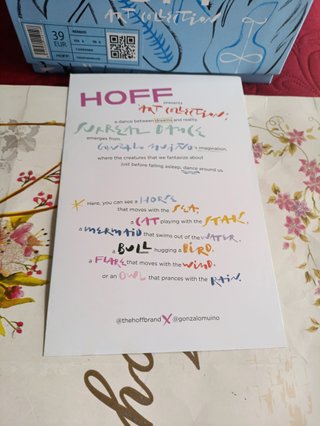 ART COLLECTION
39
EUR
HOFF
HOFF
presents
ART COLLECTION:
a dance between dreams and reality
SURREAL DANCE
emerges from
GONZALO MUIÑO's imagination,
where the creatures that we fantasize about
just before falling asleep, dance around us
Here, you can see a HORSE
that moves with the SEA,
a CAT playing with the STARS,
a MERMAID that swims out of the WATER,
a BULL hugging a BIRD,
a FLARE that moves with the WIND,
or an OWL that prances with the RAIN.
@thehoffbrand X @gonzalomuino